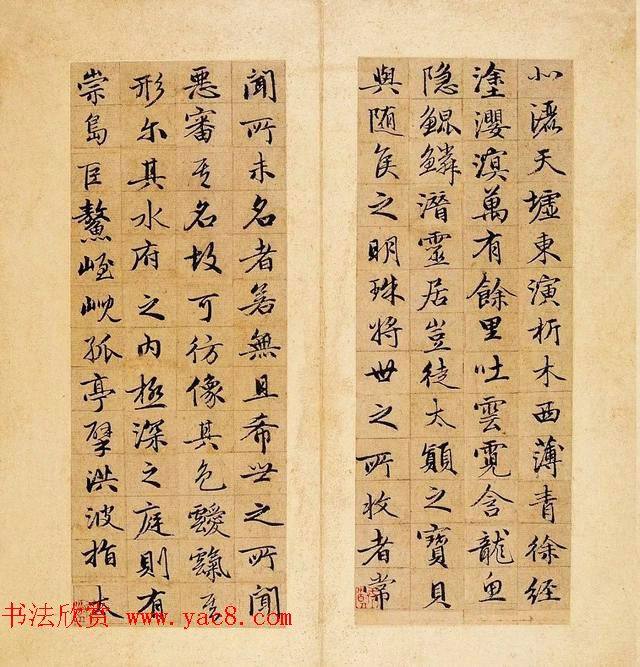 北灑天墟東演析木西薄青徐經
塗瀴溟萬有餘里吐雲霓含龍魚
隐鯤鱗潛靈居豈徒太顛之寶貝
與随侯之明珠將世之所收者常
聞所未名者若無且希世之所聞
惡審其名故可彷像其色靉霼其
形尔其水府之内極深之庭則有
崇島巨鰲峌峴孤亭擘洪波指太
书法欣赏 www.yac8.com